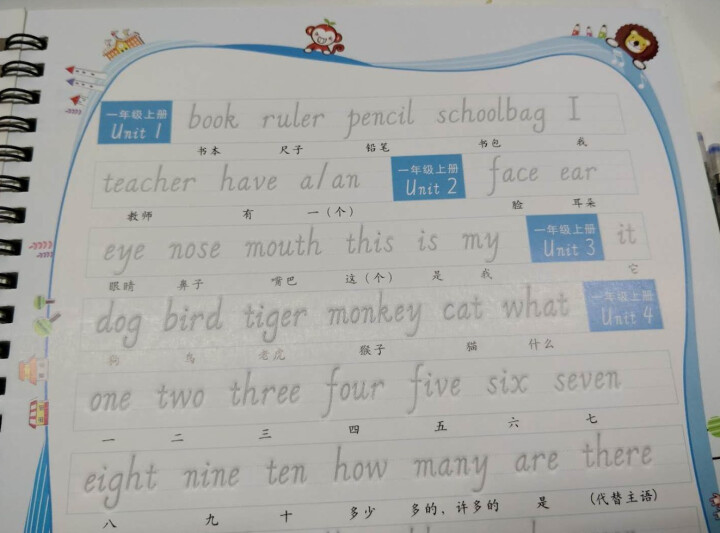 一年级上册 Unit 1 book ruler pencil schoolbag I
书本 尺子 铅笔 书包 我
teacher have a/an 一年级上册 Unit 2 face ear
教师 有 一（个） 脸 耳朵
eye nose mouth this is my 一年级上册 Unit 3 it
眼睛 鼻子 嘴巴 这（个） 是 我 它
dog bird tiger monkey cat what 一年级上册 Unit 4
狗 鸟 老虎 猴子 猫 什么
one two three four five six seven
一 二 三 四 五 六 七
eight nine ten how many are there
八 九 十 多少 多的，许多的 是 (代替主语)